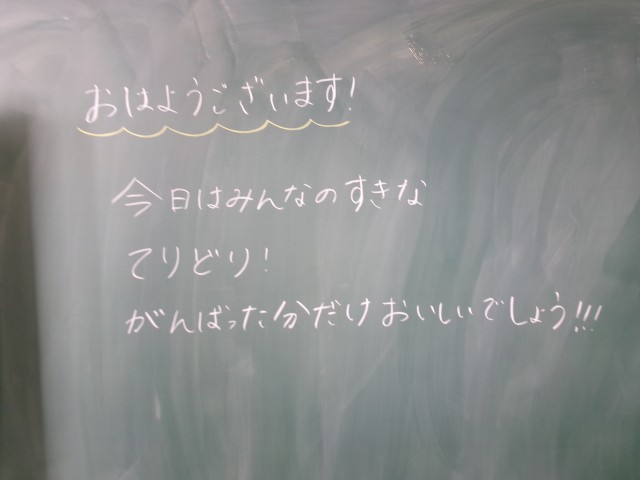 おはようございます!
今日はみんなのすきな
てりどり!
がんばった分だけおいしいでしょう!!!